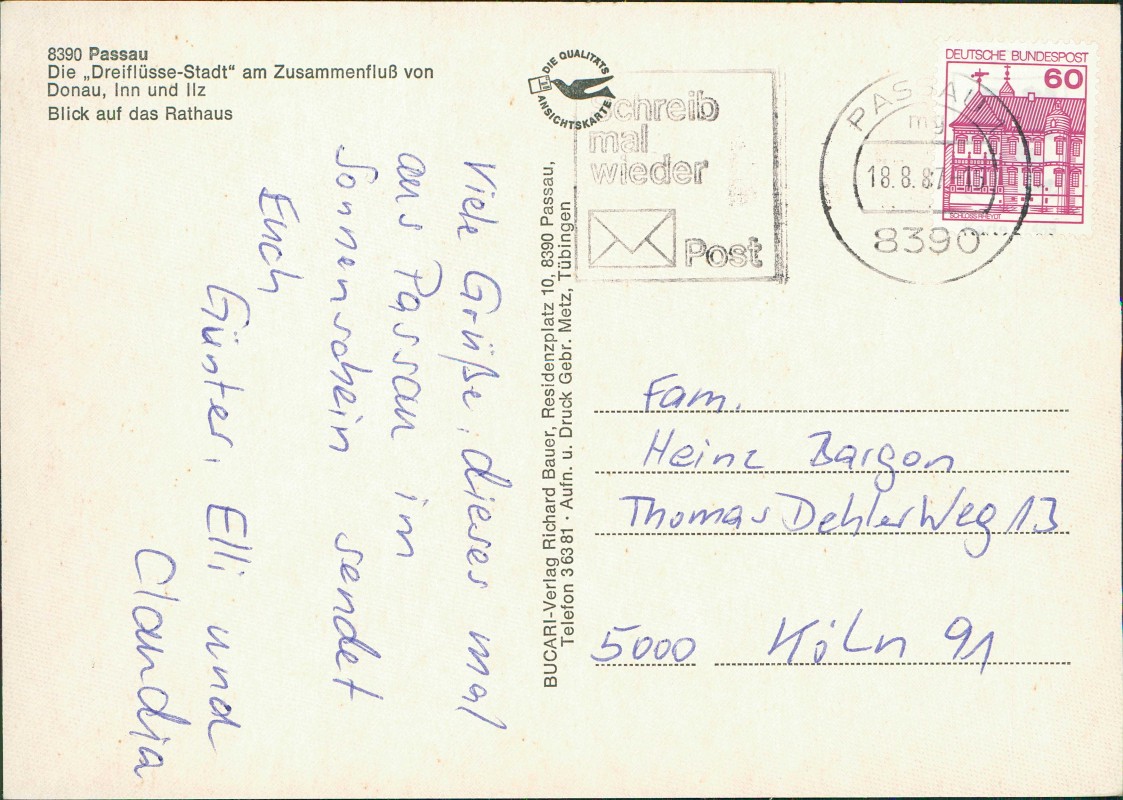 8390 Passau
Die „Dreiflüsse-Stadt" am Zusammenfluß von
Donau, Inn und Ilz
Blick auf das Rathaus
DIE QUALITÄTS
ANSICHTSKARTE
Schreib
mal
wieder
Post
PASSAU
mg
18.8.87
8390
DEUTSCHE BUNDESPOST
60
SCHLOSS RHEYDT
Viele Grüße, dieses mal
aus Passau im
Sonnenschein sendet
Euch
Günter, Elli und
Claudia
BUCARI-Verlag Richard Bauer, Residenzplatz 10, 8390 Passau,
Telefon 3 63 81 · Aufn. u. Druck Gebr. Metz, Tübingen
Fam.
Heinz Bargon
Thomas Dehler Weg 13
5000 Köln 91